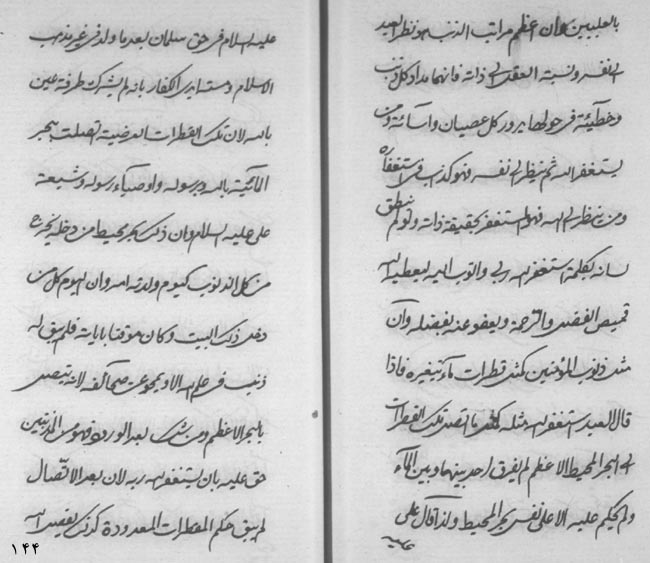 بالعلیین وان اعظم مراتب الذنب هو نظر العبد
الی نفسه ونسبة العقد الی ذاته فانهما مداد کل ذنب
وخطیئة فی حولها یدور کل عصیان واسائة ومن
یستغفر الله ثم ینظر الی نفسه فهو کذب فی استغفاره
ومن ینظر الی الله فهو استغفر بحقیقة ذاته ولو لم ینطق
لسانه بکلمة استغفر الله ربی واتوب الیه لیعطیه الله
قمیص الفضل والرحمة ویعفو عنه بفضله وان
مثل ذنوب المؤمنین کمثل قطرات ماء متغیره فاذا
قال العبد استغفر الله مثله کمثل ما اتصل تلک القطرات
الی البحر المحیط الاعظم لم یفرق احد بینهما وبین الماء
ولم یحکم علیه الا علی نفس بحر المحیط ولذا قال علی
علیه
علیه السلام فی حق سلمان بعد ما ولد فی غیر مذهب
الاسلام ومسته ایدی الکفار بانه لم یشرک طرفة عین
بالله لان تلک القطرات العرضیة اتصلت ببحر
المائیة بالله وبرسوله واوصیاء رسوله وشیعة
علی علیه السلام وان ذلک بحر محیط من دخله یخرج
من کل الذنوب کیوم ولدته امه وان الیوم کل من
دخل ذلک البیت وکان موقنا بآیاته فلم یبق له
ذنب فی علم الله الا ویمحو عن صحائفه لانه یتصل
بالبحر الاعظم ومن شک بعد الورود فهو من المذنبین
حق علیه بان یستغفر الله ربه لان بعد الاتصال
لم یبق حکم القطرات المعدودة کذلک یفعل الله
۱۴۴